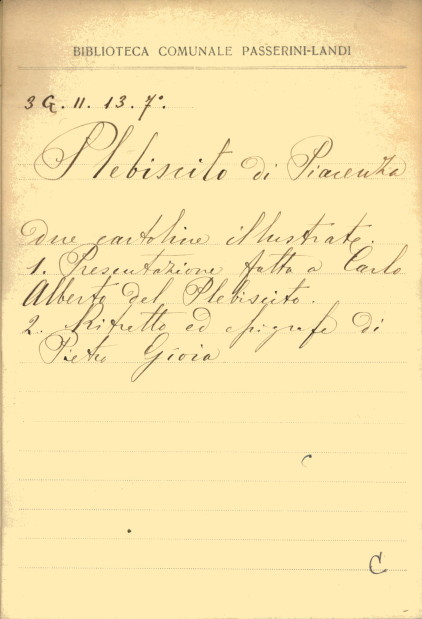 BIBLIOTECA COMUNALE PASSERINI-LANDI
3 G. II. 13. 7°.
Plebiscito di Piacenza
due cartoline illustrate.
1. Presentazione fatta a Carlo
Alberto del Plebiscito.
2. Ritratto ed epigrafe di
Pietro Gioia
C